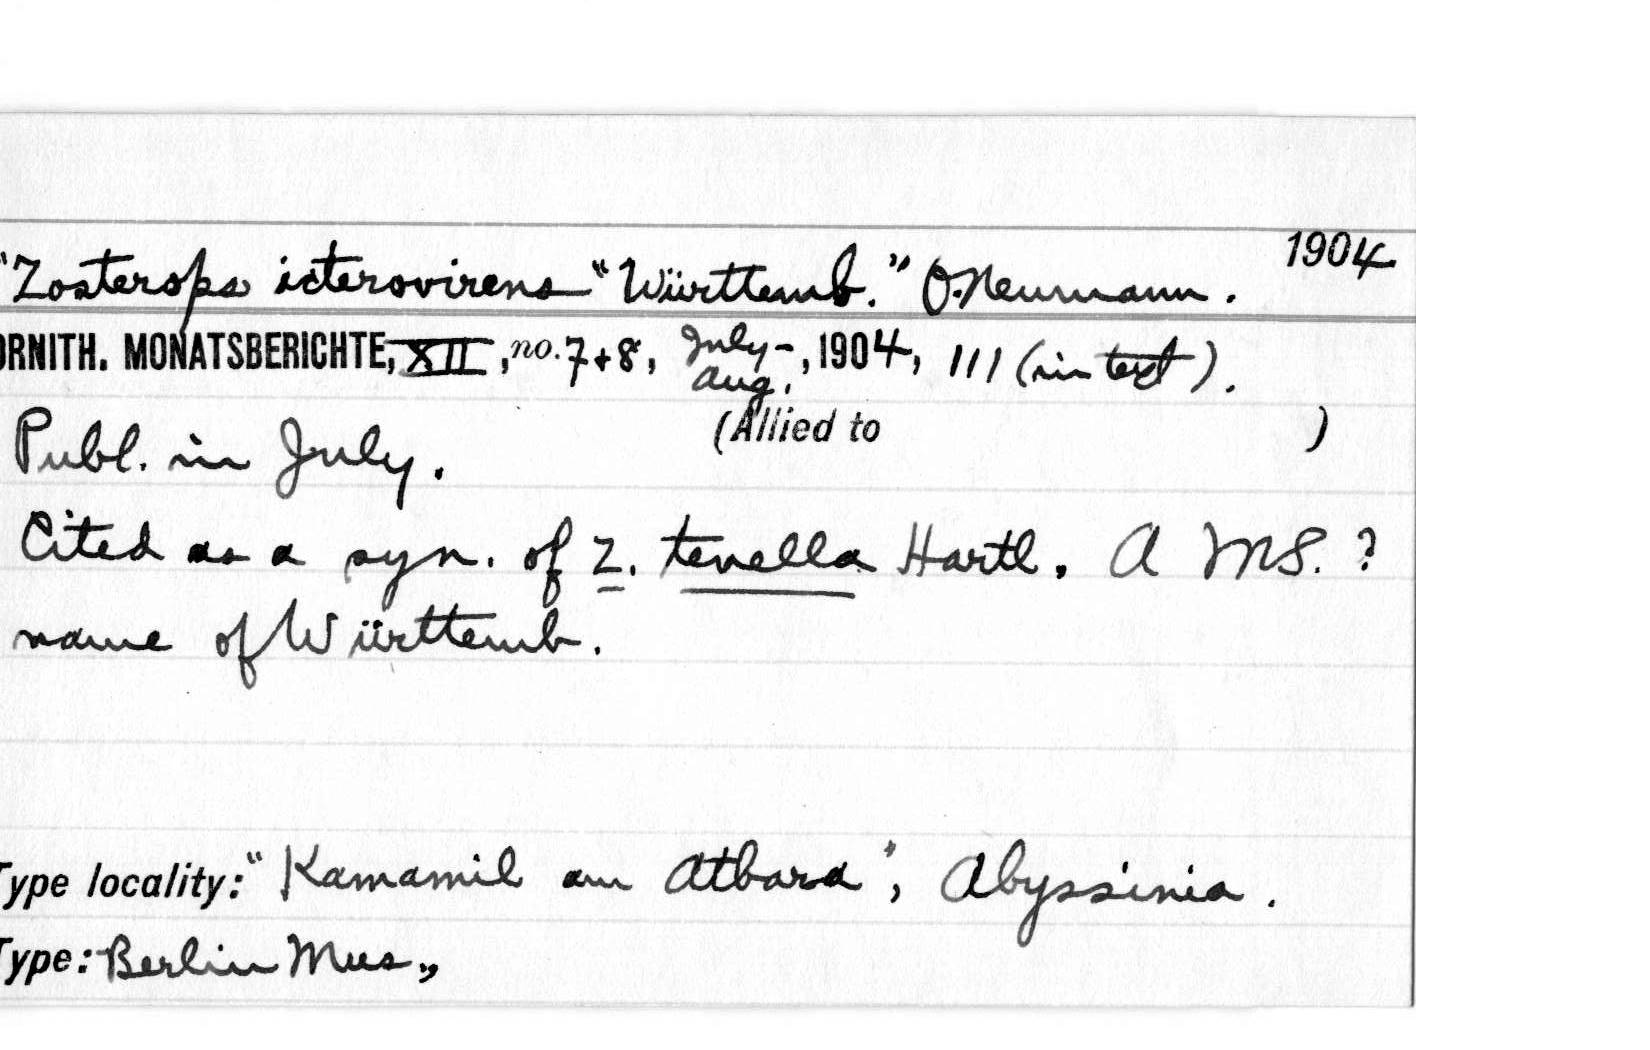 1904
"Zosterops icterovirens "Württemb." O. Neumann.
ORNITH. MONATSBERICHTE, XII, no. 7+8, July-Aug., 1904, 111 (in text).
(Allied to )
Publ. in July.
Cited as a syn. of Z. tenella Hartl. A MS. ?
name of Württemb.
Type locality: "Kamamil am Atbara", Abyssinia.
Type: Berlin Mus.,